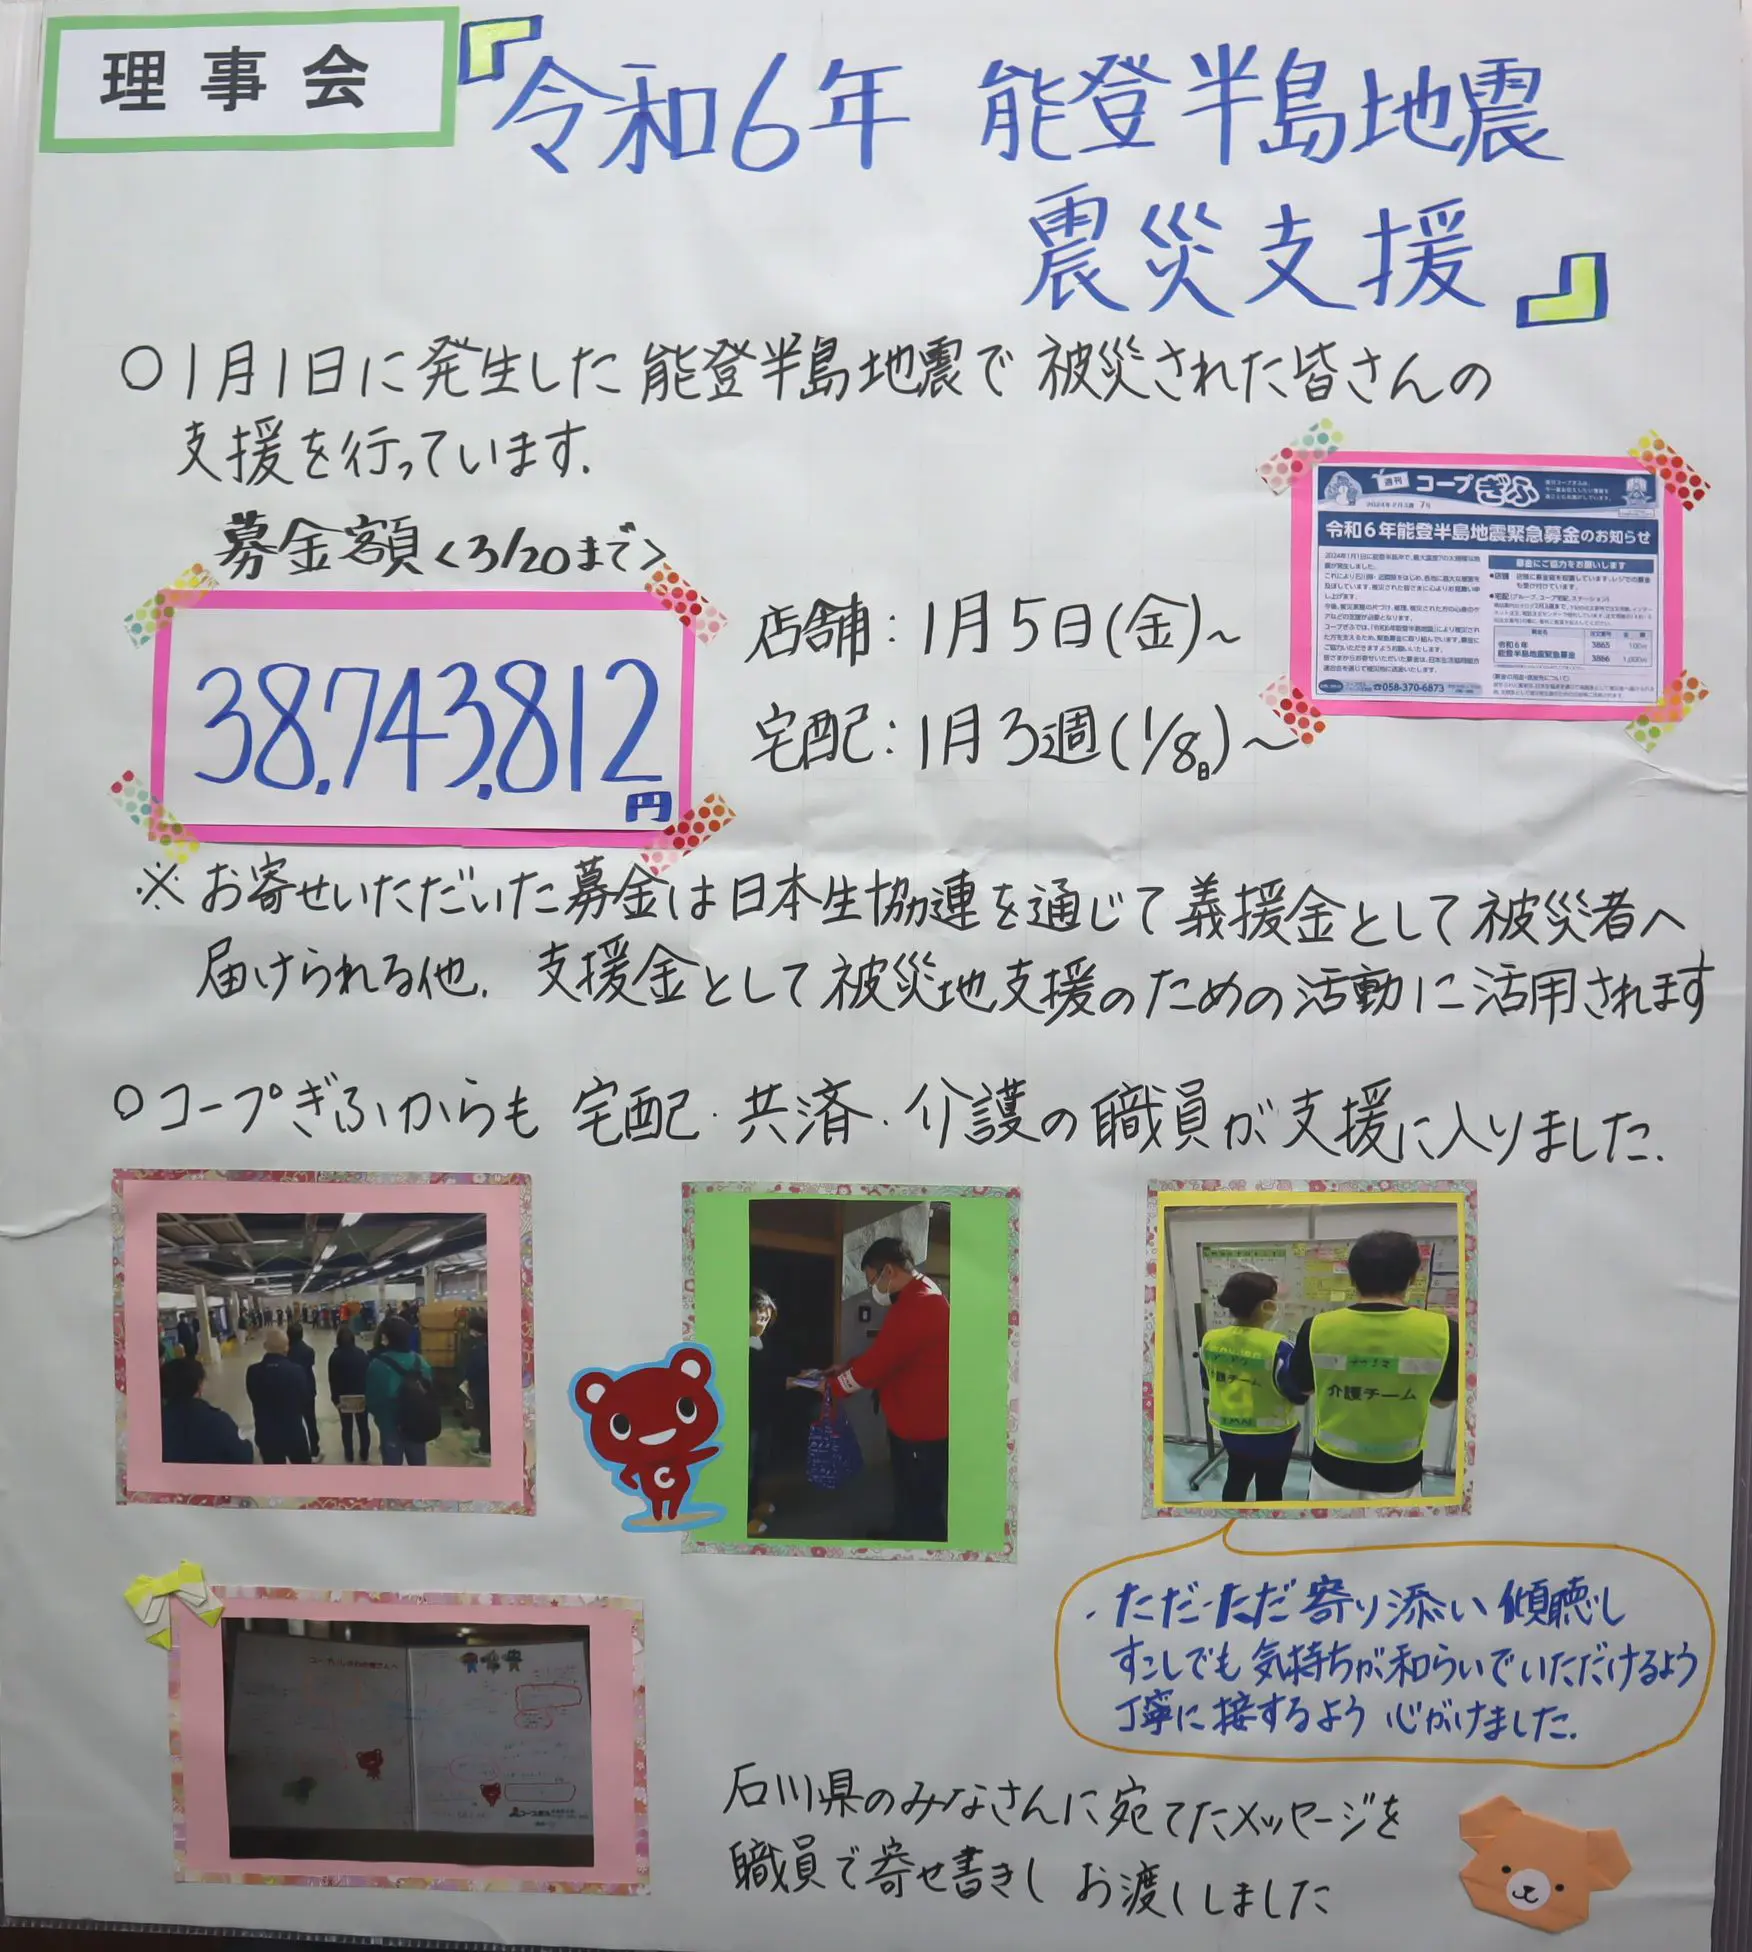 理事会
『令和6年 能登半島地震
震災支援』
○1月1日に発生した能登半島地震で被災された皆さんの
支援を行っています.
募金額<3/20まで>
38,743,812
円
店舗:1月5日(金)~
宅配:1月3週(1/8日)~
週刊 コープぎふ
2024年2月3週 7号
令和6年能登半島地震緊急募金のお知らせ
募金にご協力をお願いします
令和6年
能登半島地震緊急募金
3865 100円
3866 1,000円
☎058-370-6873
※お寄せいただいた募金は日本生協連を通じて義援金として被災者へ
届けられる他. 支援金として被災地支援のための活動に活用されます
○コープぎふからも 宅配・共済・介護の職員が支援に入りました.
C
介護チーム
護チーム
・ただ・ただ寄り添い傾聴し
すこしでも気持ちが和らいでいただけるよう
丁寧に接するよう 心がけました.
石川県のみなさんに宛てたメッセージを
職員で寄せ書きし お渡ししました